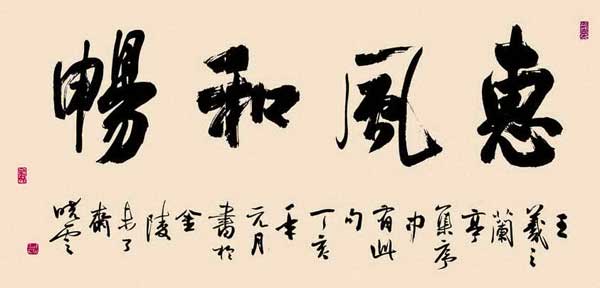 惠風和暢
王羲之蘭亭集序中有此句丁亥年元月書於金陵未了齋曉雲